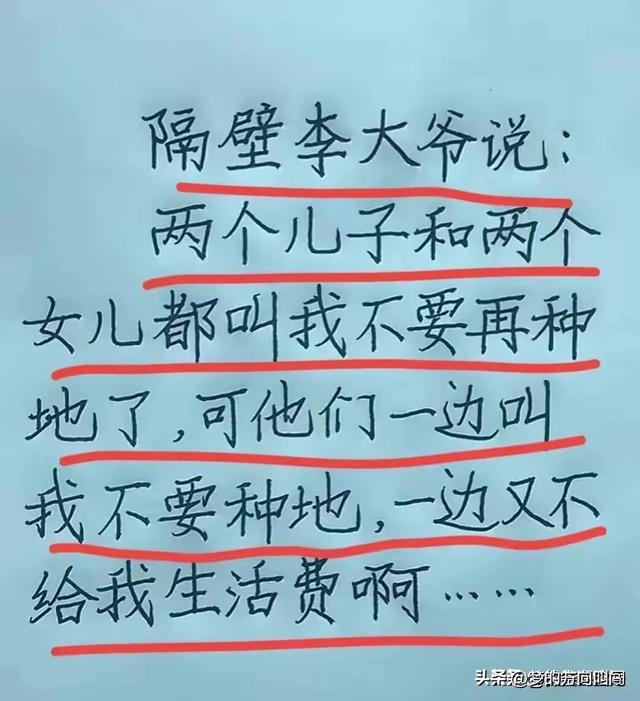 隔壁李大爷说：
两个儿子和两个
女儿都叫我不要再种
地了，可他们一边叫
我不要种地，一边又不
给我生活费啊……
头条
@梦的方向四周